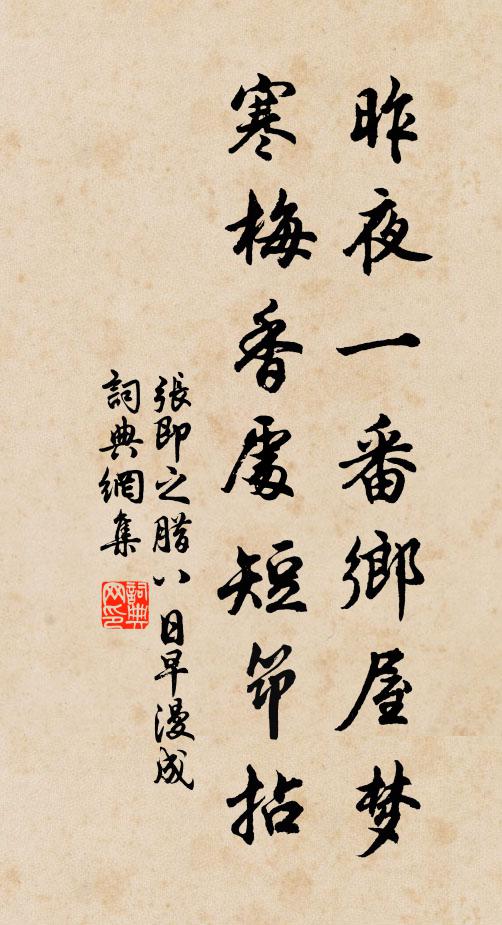 昨夜一番鄉屋梦
寒梅香處短筇拈
張即之腊八日早漫成
詞典網集
詞典网印